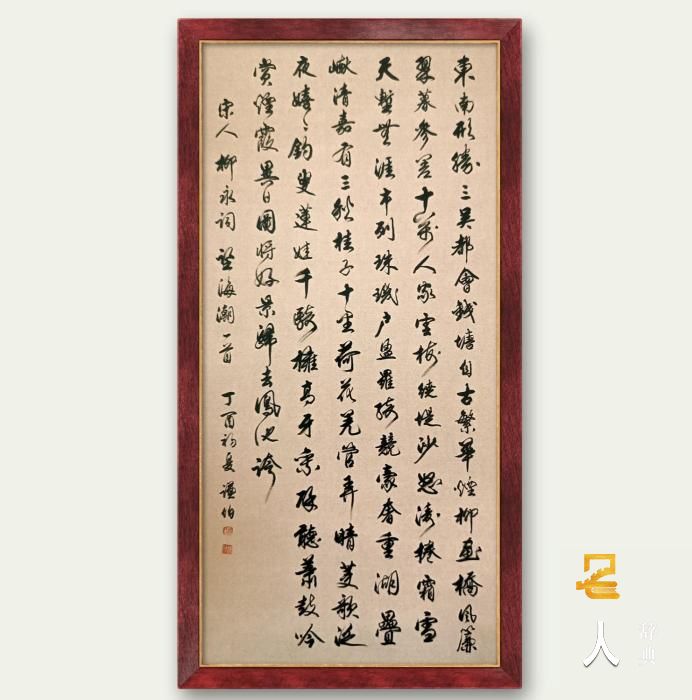 東南形勝三吴都會錢塘自古繁華煙柳畫橋風簾
翠幕參差十萬人家雲樹繞堤沙怒濤捲霜雪
天塹無涯市列珠璣户盈羅綺競豪奢重湖疊
巘清嘉有三秋桂子十里荷花羌管弄晴菱歌泛
夜嬉々釣叟蓮娃千騎擁高牙乘醉聽簫鼓吟
賞煙霞異日圖將好景歸去鳳池誇
宋人柳永詞望海潮一首 丁酉初夏謙伯
名人
辞典